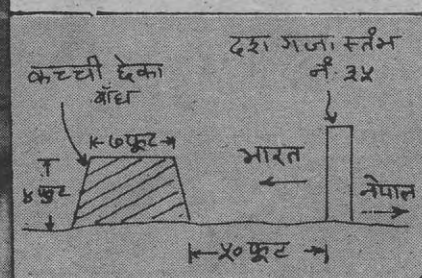 कच्ची छेका
बाँध
दश गजा स्तंभ
नं. ३५
७ फूट
४ फूट
भारत
नेपाल
५० फूट